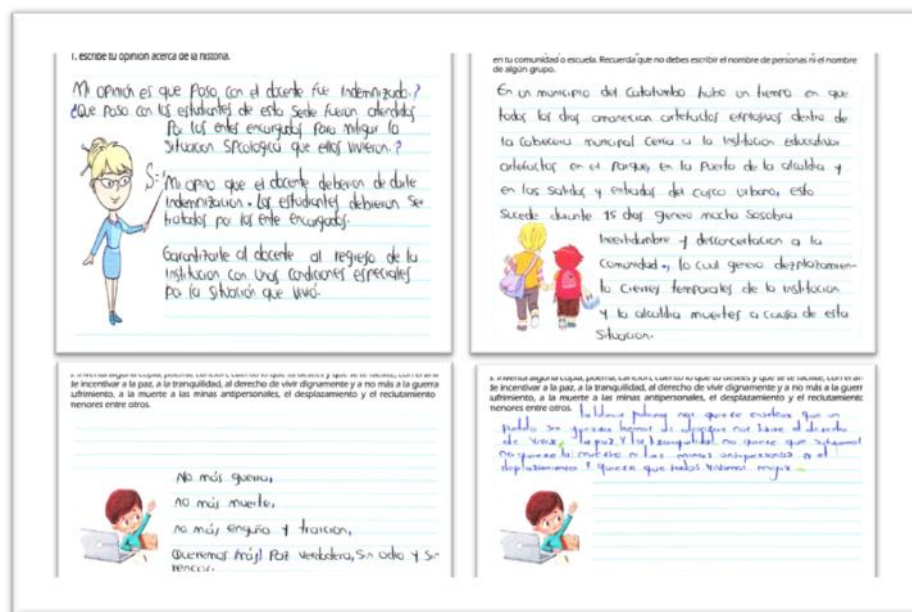 1. escribe tu opinión acerca de la historia.
Mi opinión es que Paso con el docente fue indemnizado.?
¿Que paso con los estudiantes de esta sede fueron atendidos
Por los entes encargados Para mitigar la
Situacion Spcologica que ellos vivieron.?
Mi opino que el docente debieron de darle
Indemnización. Los estudiantes debieron ser
tratados por los ente encargados.
Garantizarle al docente al regreso de la
Institucion con unas condiciones especiales
por la situación que vivió.
en tu comunidad o escuela. Recuerda que no debes escribir el nombre de personas ni el nombre
de algún grupo.
En un municipio del Catatumbo hubo un tiempo en que
todos los dias amanecian artefactos explosivos dentro de
la cabecera municipal cerca a la institucion educativa
artefactos en el Parque, en la Puerta de la alcaldia y
en las salidas y entradas del casco urbano, esto
Sucede durante 15 dias genero mucha Sosobra
Incertidumbre y desconcertacion a la
comunidad., lo cual genero dezplazamien-
to cierres temporales de la institucion
y la alcaldia muertes a causa de esta
Situacion.
de incentivar a la paz, a la tranquilidad, al derecho de vivir dignamente y a no más a la guerra
sufrimiento, a la muerte a las minas antipersonales, el desplazamiento y el reclutamiento
menores entre otros.
No más guerra,
no más muerte,
no más engaño y traicion,
Queremos más! Paz verdadera, Sin odio y Sin
rencor.
de incentivar a la paz, a la tranquilidad, al derecho de vivir dignamente y a no más a la guerr
sufrimiento, a la muerte a las minas antipersonales, el desplazamiento y el reclutamiento
menores entre otros.
la paloma nos quiere enseñar que un
pueblo sin guerra hemos de alcanzar nos tiene el derecho
de vivir, la paz y la tranquilidad no quiere que suframos
no quiere la muerte ni las minas antipersonas ni el
desplazamiento y quiere que todos vivamos mejor.